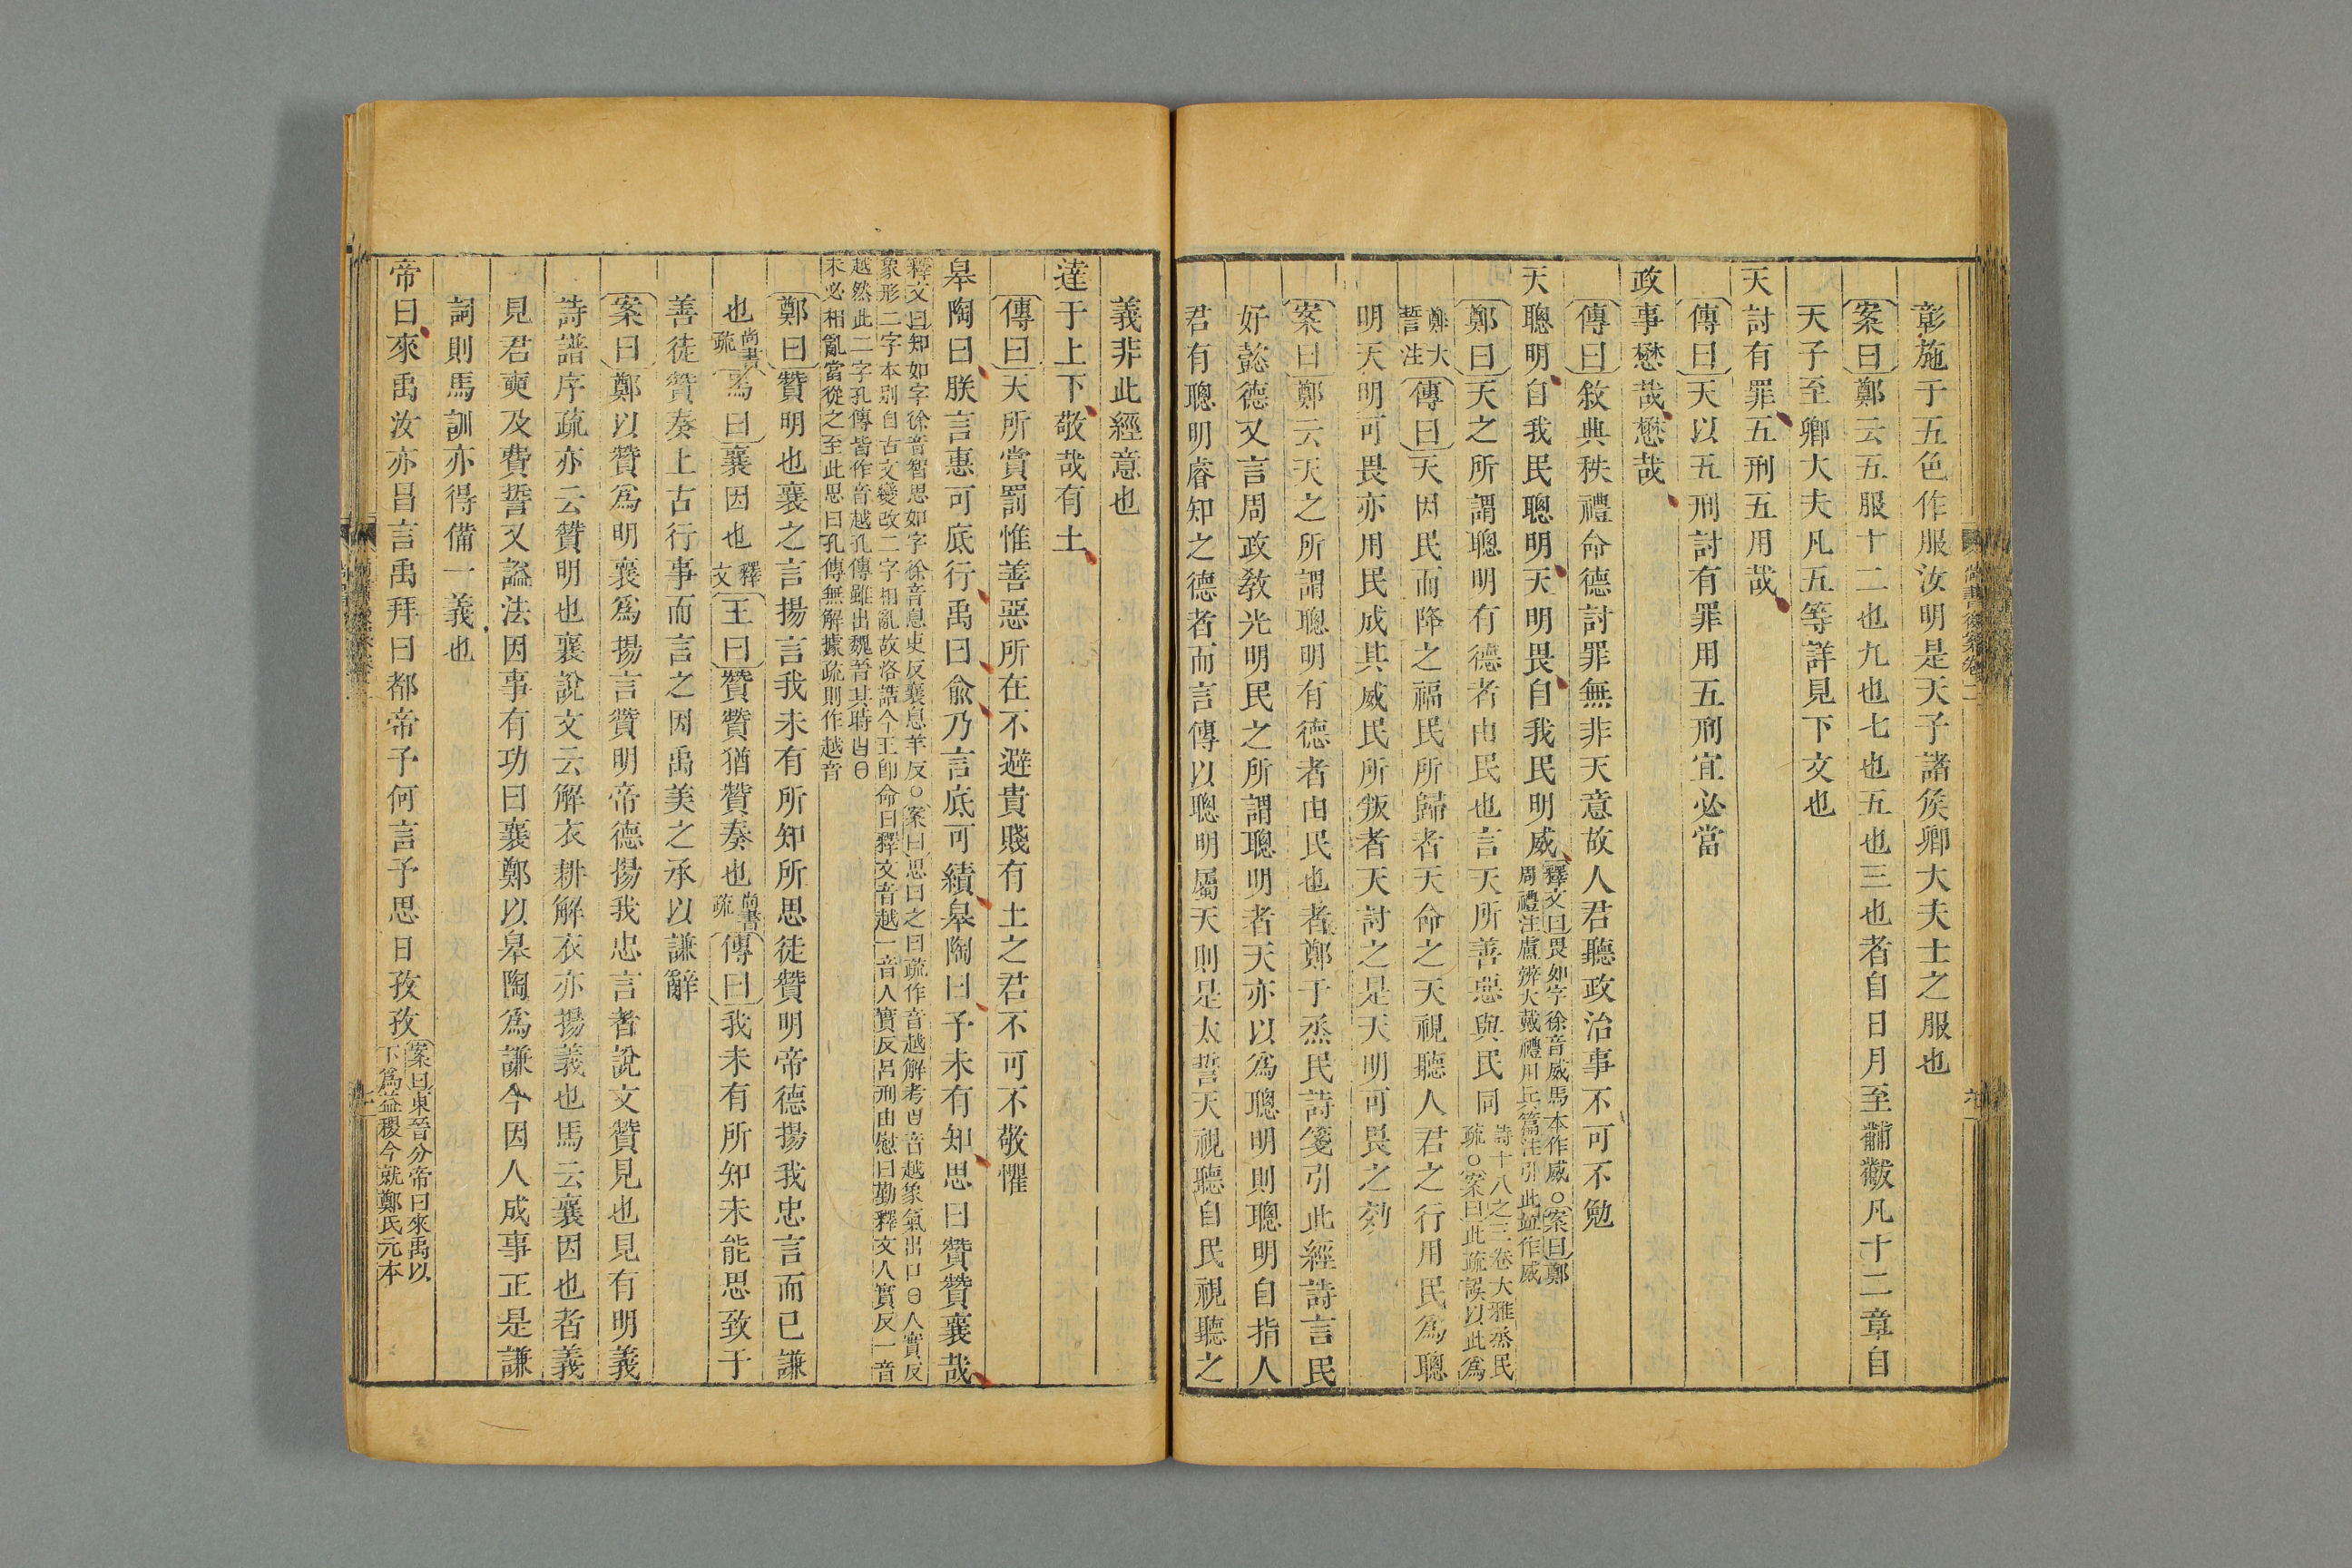 彰施于五色作服汝明是天子諸侯卿大夫士之服也
案曰鄭云五服十二也九也七也五也三也者自日月至黼黻凡十二章自
天子至卿大夫凡五等詳見下文也
天討有罪五刑五用哉
傳曰天以五刑討有罪用五刑宜必當
政事懋哉懋哉
傳曰敘典秩禮命德討罪無非天意故人君聽政治事不可不勉
天聰明自我民聰明天明畏自我民明威釋文曰畏如字徐音威馬本作威○案曰鄭
周禮注盧辨大戴禮用兵篇注引此竝作威
鄭曰天之所謂聰明有德者由民也言天所善惡與民同詩十八之三卷大雅烝民
疏○案曰此疏誤以此爲
鄭大
誓注傳曰天因民而降之福民所歸者天命之天視聽人君之行用民爲聰
明天明可畏亦用民成其威民所叛者天討之是天明可畏之効
案曰鄭云天之所謂聰明有德者由民也者鄭于烝民詩箋引此經詩言民
好懿德又言周政敎光明民之所謂聰明者天亦以爲聰明則聰明自指人
君有聰明睿知之德者而言傳以聰明屬天則是太誓天視聽自民視聽之
尚書後案卷二
義非此經意也
達于上下敬哉有土
傳曰天所賞罰惟善惡所在不避貴賤有土之君不可不敬懼
皋陶曰朕言惠可底行禹曰兪乃言底可績皋陶曰予未有知思曰贊贊襄哉
釋文曰知如字徐音智思如字徐音息吏反襄息羊反○案曰思曰之曰疏作音越解考曰音越象氣出口日人實反
象形二字本別自古文變改二字相亂故洛誥今王卽命曰釋文音越一音人實反呂刑由慰曰勤釋文人實反一音
越然此二字孔傳皆作音越孔傳雖出魏晉其時曰日
未必相亂當從之至此思曰孔傳無解據疏則作越音
鄭曰贊明也襄之言揚言我未有所知所思徒贊明帝德揚我忠言而已謙
也尚書
疏馬曰襄因也釋
文王曰贊贊猶贊奏也尚書
疏傳曰我未有所知未能思致于
善徒贊奏上古行事而言之因禹美之承以謙辭
案曰鄭以贊爲明襄爲揚言贊明帝德揚我忠言者說文贊見也見有明義
詩譜序疏亦云贊明也襄說文云解衣耕解衣亦揚義也馬云襄因也者義
見君奭及費誓又謚法因事有功曰襄鄭以皋陶爲謙今因人成事正是謙
詞則馬訓亦得備一義也
帝曰來禹汝亦昌言禹拜曰都帝予何言予思日孜孜案曰東晉分帝曰來禹以
下爲益稷今就鄭氏元本